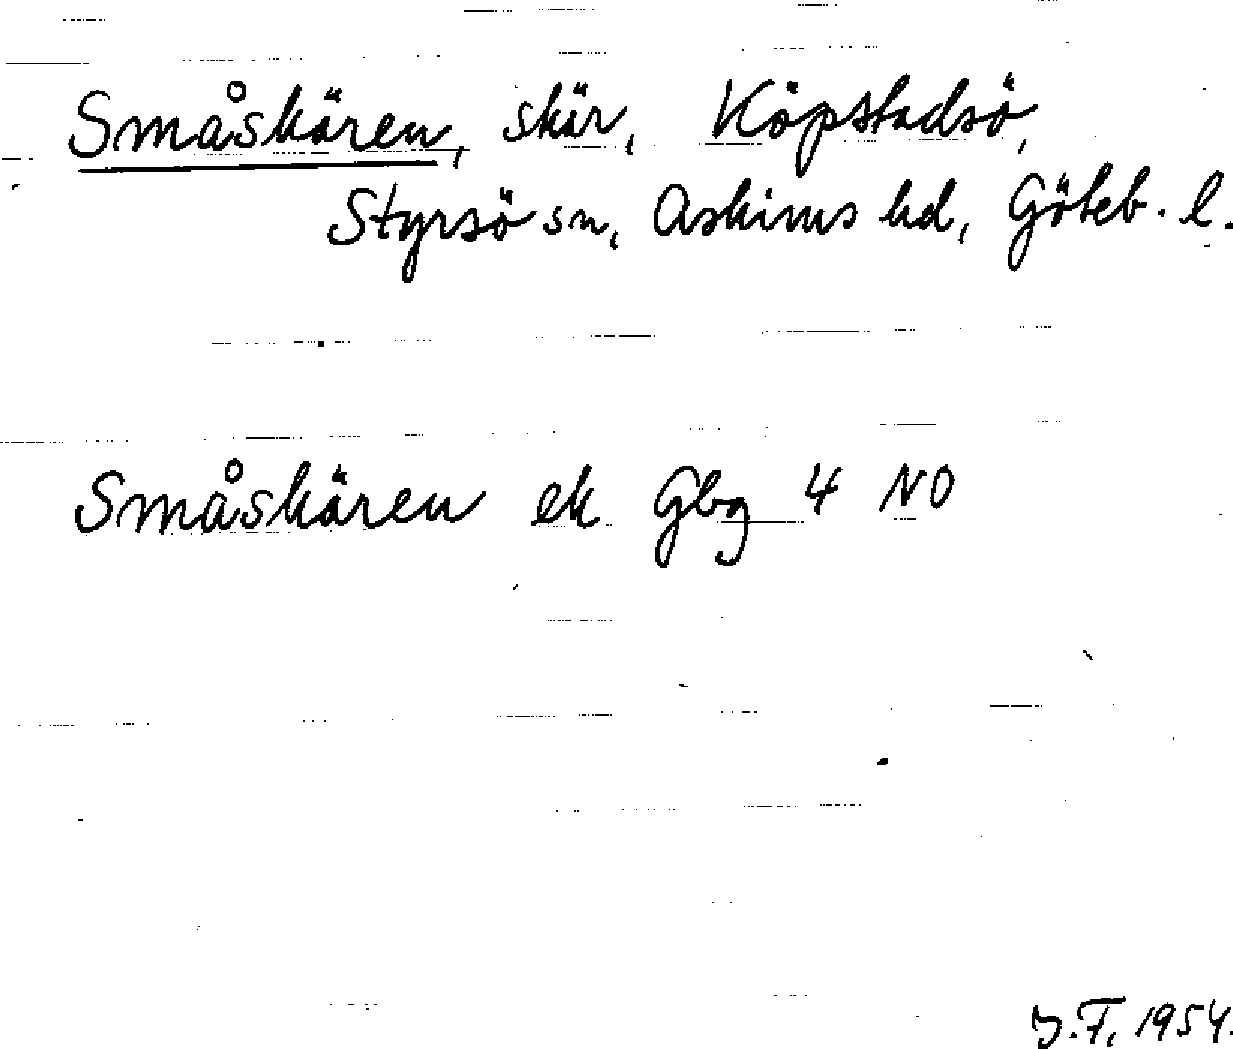 Småskären, skär, Köpstadsö,
Styrsö sn, Askims hd, Göteb. l.
Småskären ek Gbg 4 NO
J.F, 1954.